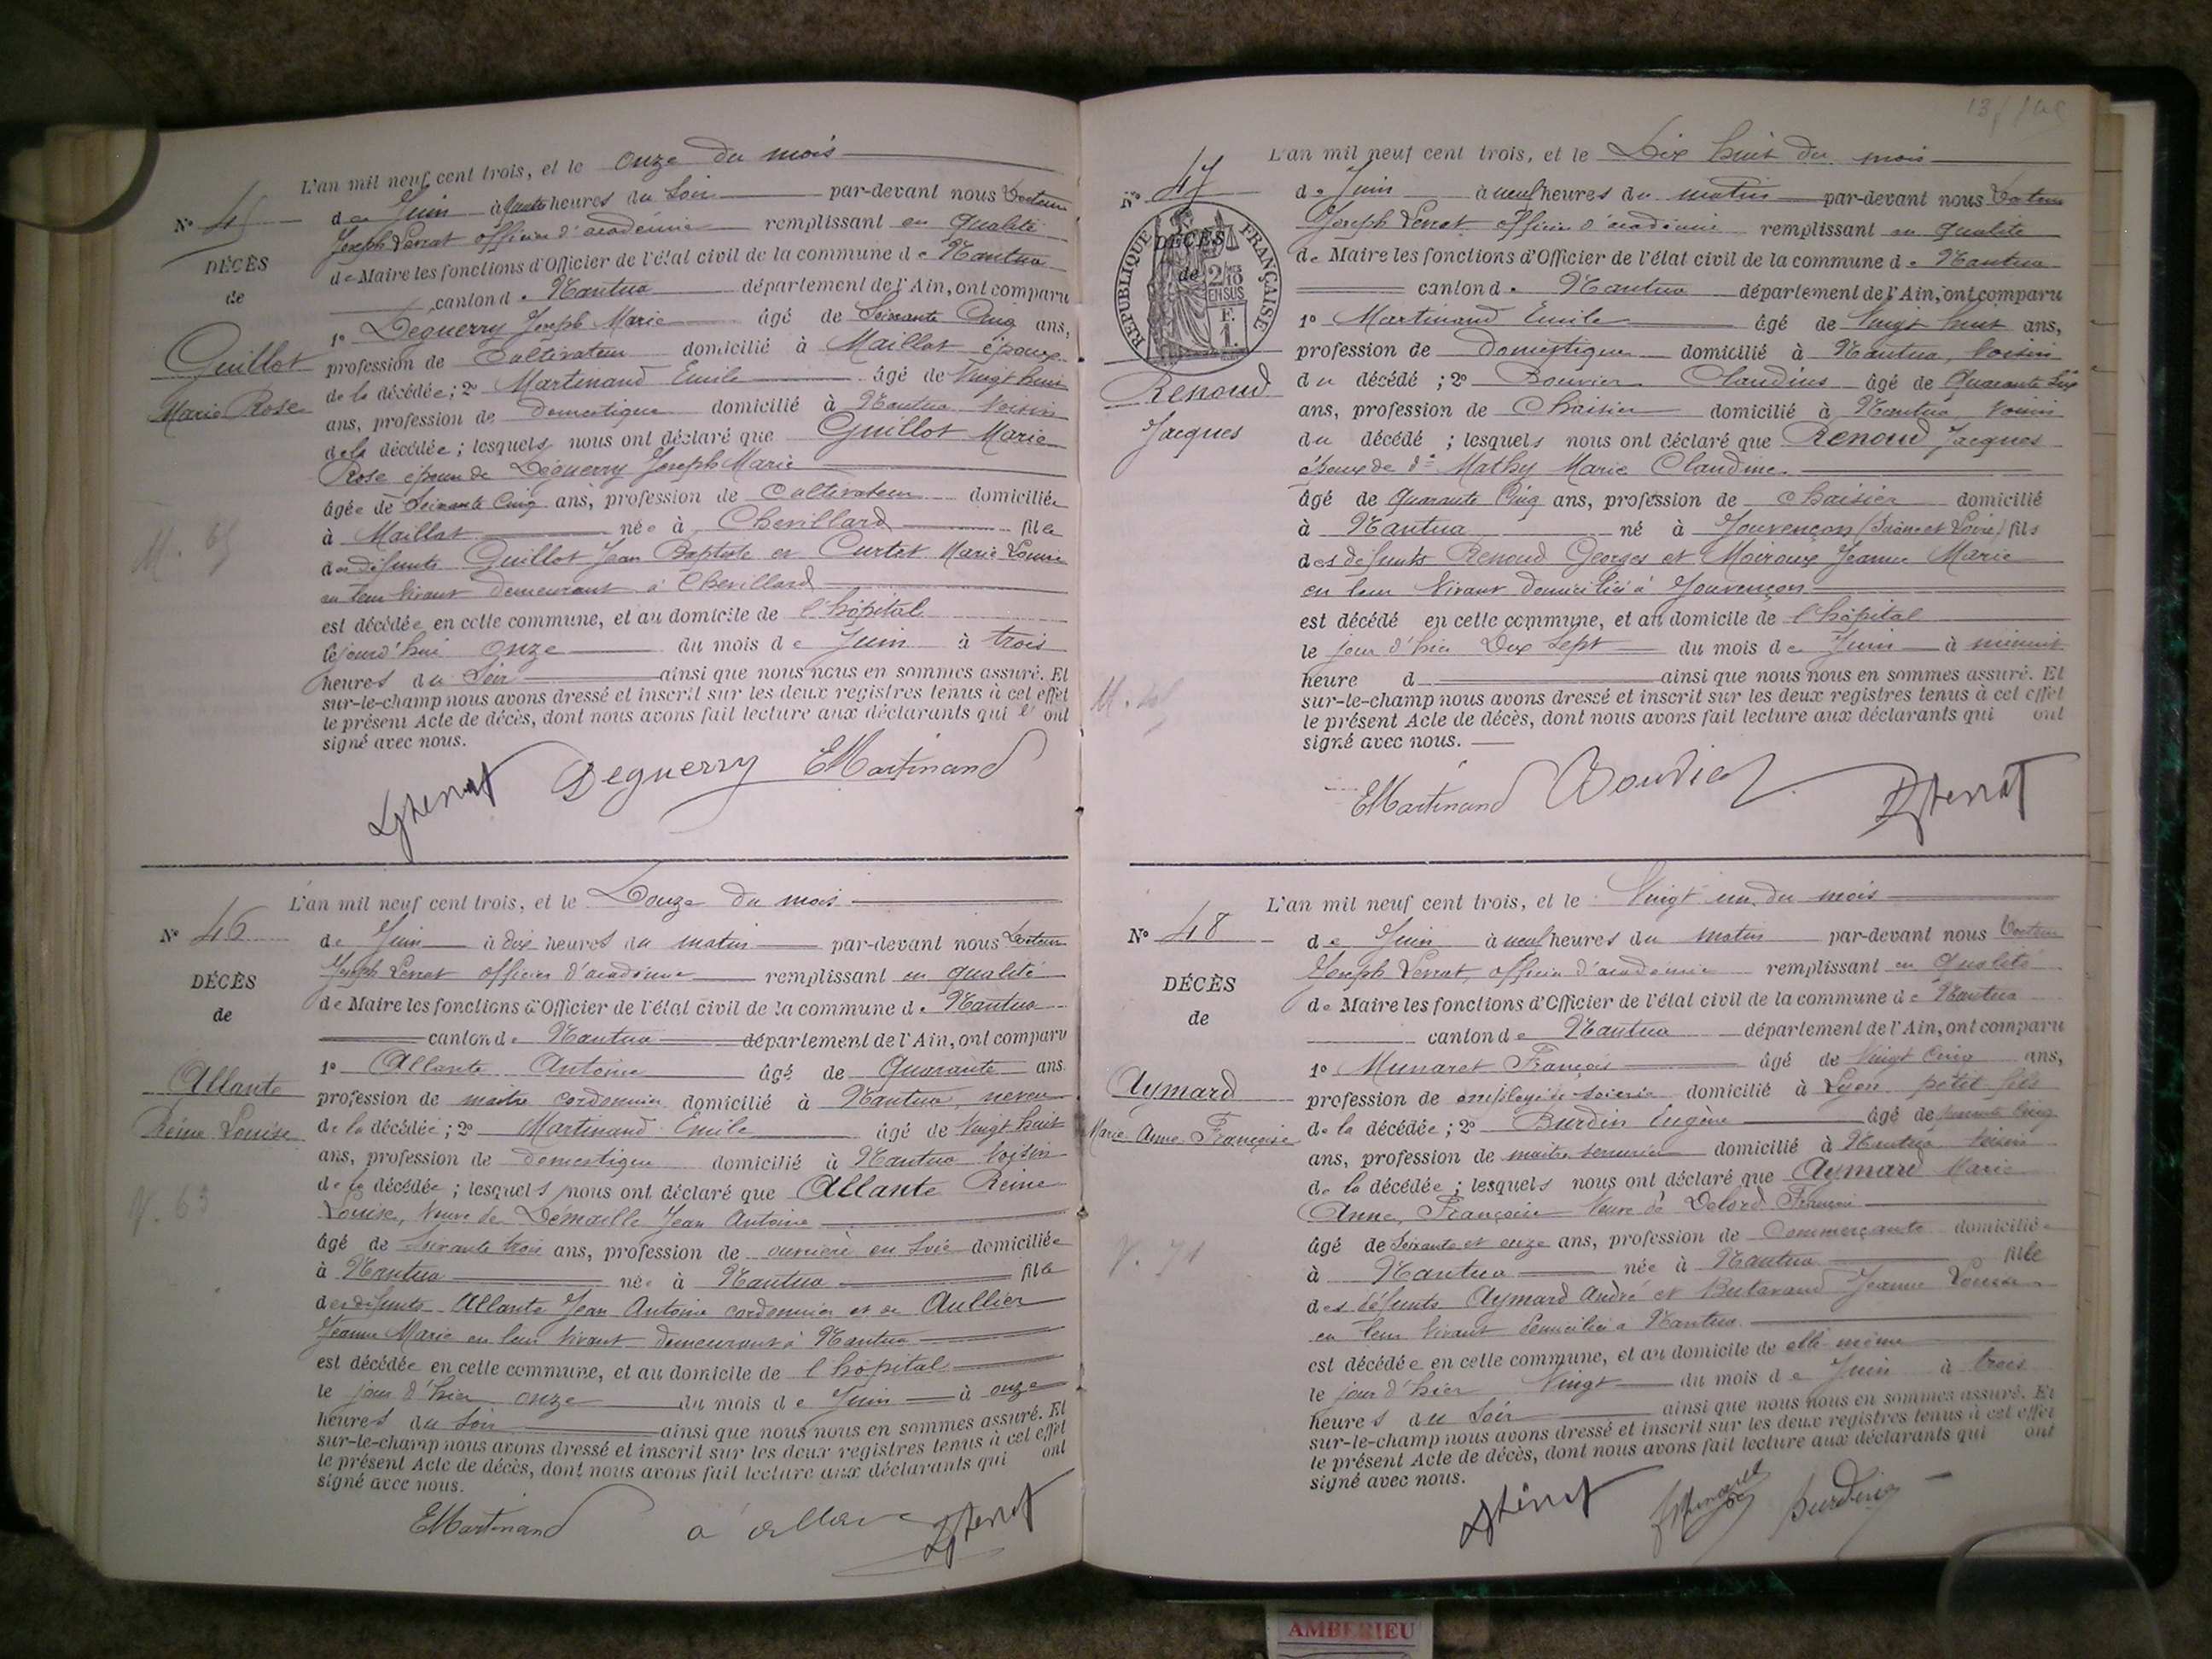 L'an mil neuf cent trois, et le onze du mois
N° 45 de Juin à quatre heures du soir par-devant nous Docteur
Joseph Perrat officier d'académie remplissant en qualité
DÉCÈS
de Maire les fonctions d'Officier de l'état civil de la commune de Nantua
de
canton de Nantua département de l'Ain, ont comparu
1° Deguerry Joseph Marie âgé de Soixante Cinq ans,
Guillot
profession de Cultivateur domicilié à Maillat époux
Marie Rose
de la décédée ; 2° Martinand Emile âgé de Vingt huit
ans, profession de domestique domicilié à Nantua voisin
de la décédée ; lesquels nous ont déclaré que Guillot Marie
Rose épouse de Déguerry Joseph Marie
âgée de Soixante Cinq ans, profession de Cultivateur domiciliée
à Maillat née à Chevillard fille
M. 65
des défunts Guillot Jean Baptiste et Curtet Marie Louise
en leur vivant demeurant à Chevillard
est décédée en cette commune, et au domicile de l'hôpital
le jourd'hui onze du mois de Juin à trois
heures du Soir ainsi que nous nous en sommes assuré. Et
sur-le-champ nous avons dressé et inscrit sur les deux registres tenus à cet effet
le présent Acte de décès, dont nous avons fait lecture aux déclarants qui ont
signé avec nous.
Deguerry EMartinand
L'an mil neuf cent trois, et le Douze du mois
N° 46 de Juin à dix heures du matin par-devant nous Docteur
Joseph Perrat officier d'académie remplissant en qualité
DÉCÈS
de Maire les fonctions d'Officier de l'état civil de la commune de Nantua
de
canton de Nantua département de l'Ain, ont comparu
1° Allante Antoine âgé de Quarante ans
Allante
profession de maître cordonnier domicilié à Nantua neveu
Reine Louise
de la décédée ; 2° Martinand Emile âgé de Vingt huit
ans, profession de domestique domicilié à Nantua voisin
de la décédée ; lesquels nous ont déclaré que Allante Reine
V. 63
Louise, veuve de Démaille Jean Antoine
âgé de Soixante trois ans, profession de ouvrière en soie domiciliée
à Nantua née à Nantua fille
des défunts Allante Jean Antoine cordonnier et de Aullier
Jeanne Marie en leur vivant demeurant à Nantua
est décédée en cette commune, et au domicile de l'hôpital
le jour d'hier onze du mois de Juin à onze
heures du Soir ainsi que nous nous en sommes assuré. Et
sur-le-champ nous avons dressé et inscrit sur les deux registres tenus à cet effet
le présent Acte de décès, dont nous avons fait lecture aux déclarants qui ont
signé avec nous.
EMartinand
L'an mil neuf cent trois, et le Dix huit du mois
N° 47 de Juin à neuf heures du matin par-devant nous Docteur
Joseph Perrat officier d'académie remplissant en qualité
RÉPUBLIQUE FRANÇAISE
DÉCÈS
de
2/10 EN SUS
F. 1.
de Maire les fonctions d'Officier de l'état civil de la commune de Nantua
canton de Nantua département de l'Ain, ont comparu
1° Martinand Emile âgé de Vingt huit ans,
profession de Domestique domicilié à Nantua, voisin
Renoud
du décédé ; 2° Bouvier Claudius âgé de Quarante Six
ans, profession de Chaisier domicilié à Nantua, voisin
Jacques
du décédé ; lesquels nous ont déclaré que Renoud Jacques
époux de Mathy Marie Claudine
âgé de quarante Cinq ans, profession de chaisier domicilié
à Nantua né à Jouvençon (Saône et Loire) fils
des défunts Renoud Georges et Moiroux Jeanne Marie
en leur vivant domiciliés à Jouvençon
est décédé en cette commune, et au domicile de l'hôpital
le jour d'hier Dix Sept du mois de Juin à minuit
heure d ainsi que nous nous en sommes assuré. Et
sur-le-champ nous avons dressé et inscrit sur les deux registres tenus à cet effet
le présent Acte de décès, dont nous avons fait lecture aux déclarants qui ont
signé avec nous.
EMartinand Bouvier
L'an mil neuf cent trois, et le Vingt un du mois
N° 48 de Juin à neuf heures du matin par-devant nous Docteur
Joseph Perrat, officier d'académie remplissant en qualité
DÉCÈS
de Maire les fonctions d'Officier de l'état civil de la commune de Nantua
de
canton de Nantua département de l'Ain, ont comparu
1° Munaret François âgé de Vingt Cinq ans,
Aymard
profession de employé de soierie domicilié à Lyon petit fils
Marie Anne Françoise
de la décédée ; 2° Burdin Eugène âgé de Cinq
ans, profession de maître serrurier domicilié à Nantua voisin
de la décédée ; lesquels nous ont déclaré que Aymard Marie
Anne, Françoise Veuve de Delord François
âgé de Soixante et onze ans, profession de Commerçante domiciliée
V. 71
à Nantua née à Nantua fille
des défunts Aymard André et Butavand Jeanne Louise
en leur vivant domiciliés à Nantua
est décédée en cette commune, et au domicile de elle-même
le jour d'hier Vingt du mois de Juin à trois
heures du Soir ainsi que nous nous en sommes assuré. Et
sur-le-champ nous avons dressé et inscrit sur les deux registres tenus à cet effet
le présent Acte de décès, dont nous avons fait lecture aux déclarants qui ont
signé avec nous.
Burdin
AMBERIEU